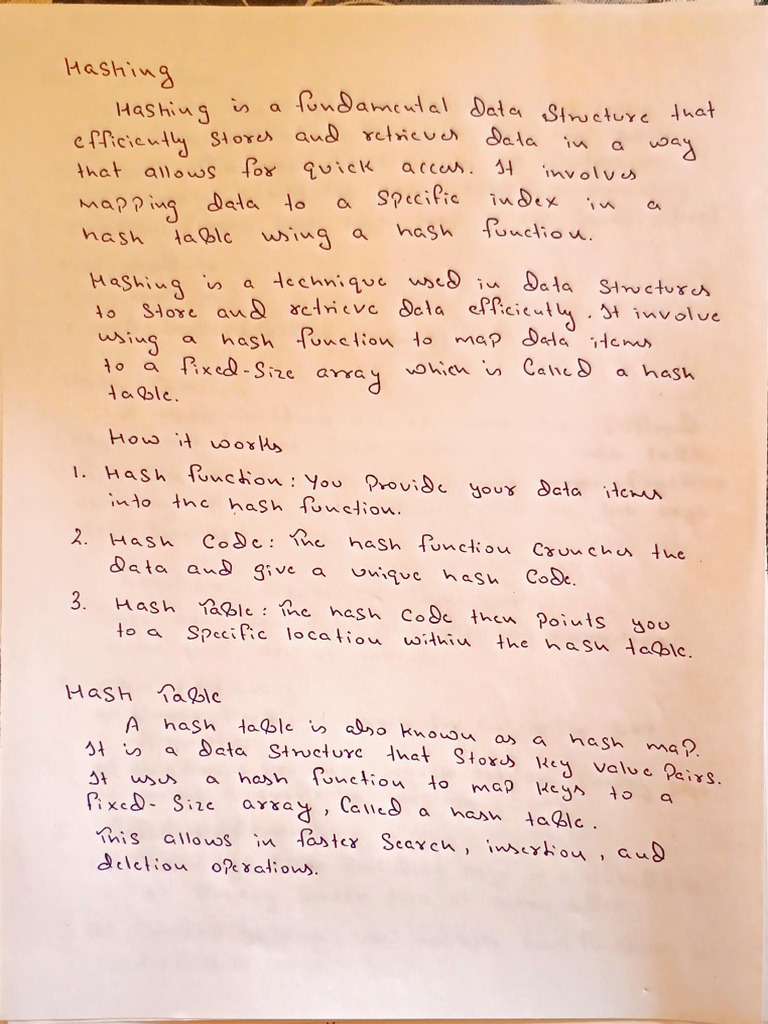 Hashing
Hashing is a fundamental Data Structure that
efficiently stores and retrieves data in a way
that allows for quick access. It involves
mapping data to a specific index in a
hash table using a hash function.
Hashing is a technique used in Data Structures
to store and retrieve data efficiently. It involve
using a hash function to map data items
to a fixed-size array which is called a hash
table.
How it works
1. Hash function: You provide your data items
into the hash function.
2. Hash Code: The hash function crunches the
data and give a unique hash code.
3. Hash Table: The hash code then points you
to a specific location within the hash table.
Hash Table
A hash table is also known as a hash map.
It is a data structure that stores key value pairs.
It uses a hash function to map keys to a
fixed-size array, called a hash table.
This allows in faster search, insertion, and
deletion operations.